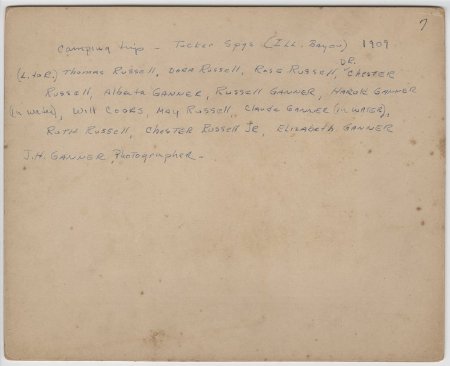 7
Camping trip - Tucker Spgs (Ill. Bayou) 1909
(L. to R.) Thomas Russell, Dora Russell, Rose Russell, DR. Chester
Russell, Alberta Ganner, Russell Ganner, Harok Ganner
(in water), Will Cooks, May Russell, Claude Ganner (in water),
Ruth Russell, Chester Russell Jr, Elizabeth Ganner
J.H. Ganner, Photographer.